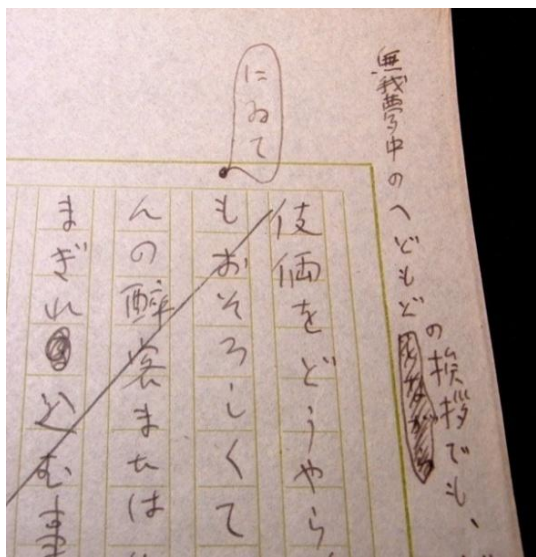 無我夢中のへどもど
の挨拶でも、
伎倆をどうやら
にゐて
もおそろしくて
んの酔客または
まぎれ込むま